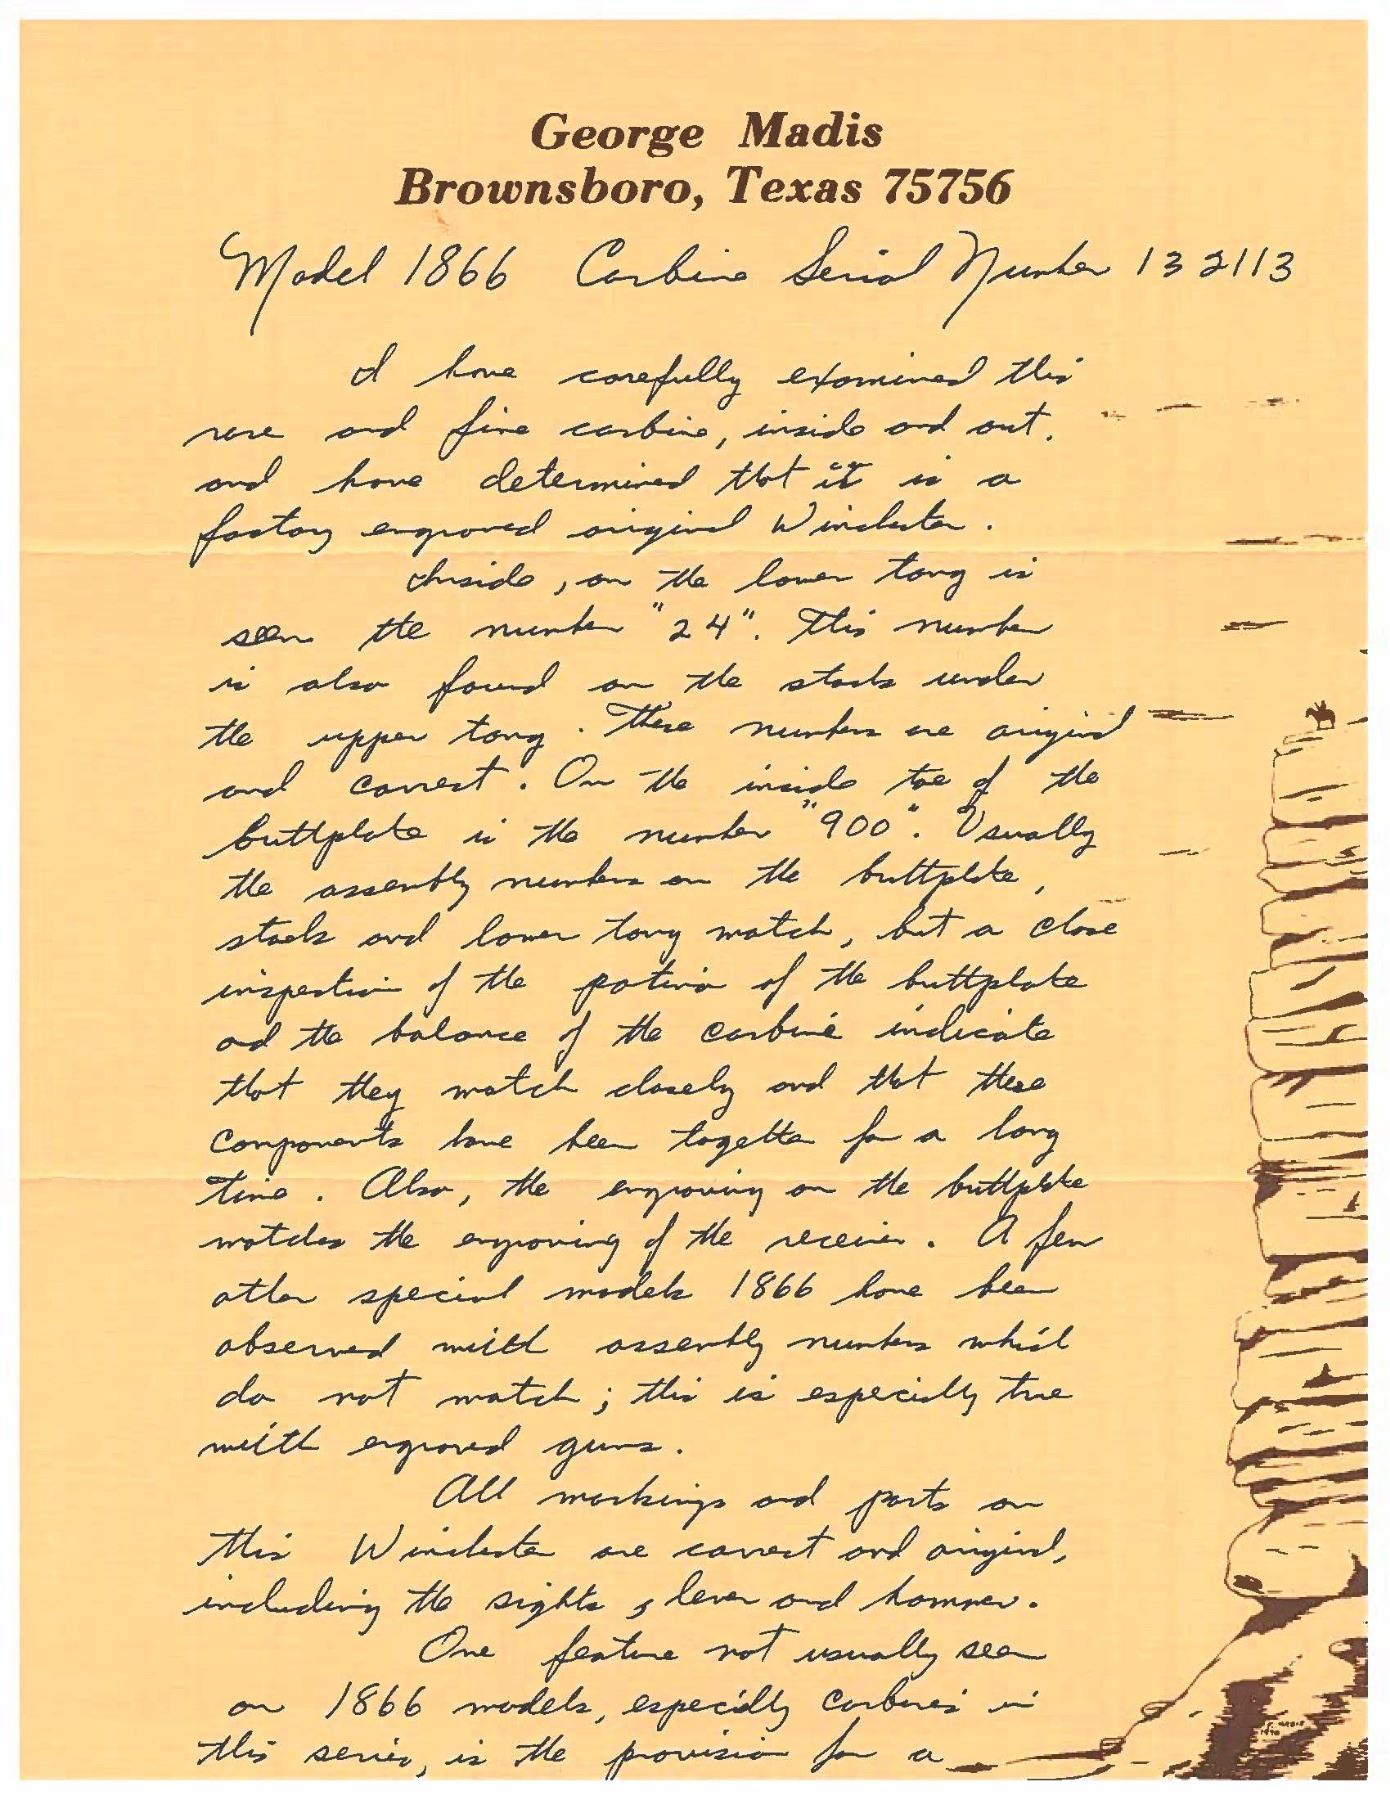 George Madis
Brownsboro, Texas 75756
Model 1866 Carbine Serial Number 132113
I have carefully examined this
rare and fine carbine, inside and out,
and have determined that it is a
factory engraved original Winchester.
Inside, on the lower tang is
seen the number "24". This number
is also found on the stock under
the upper tang. These numbers are original
and correct. On the inside toe of the
buttplate is the number "900". Usually
the assembly numbers on the buttplate,
stock and lower tang match, but a close
inspection of the patina of the buttplate
and the balance of the carbine indicate
that they match closely and that these
components have been together for a long
time. Also, the engraving on the buttplate
matches the engraving of the receiver. A few
other special models 1866 have been
observed with assembly numbers which
do not match; this is especially true
with engraved guns.
All markings and parts on
this Winchester are correct and original,
including the sights, lever and hammer.
One feature not usually seen
on 1866 models, especially carbines in
this series, is the provision for a